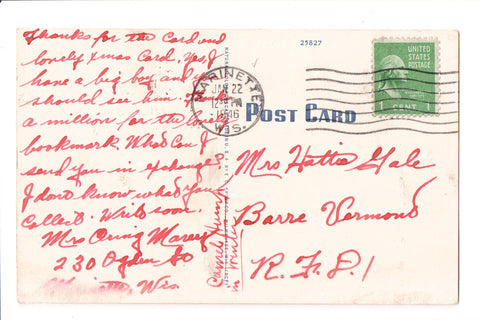 Thanks for the Card and
lovely Xmas Card. Yes, I
have a big boy and you
should see him. Thanks
a million for the lovely
bookmark. What Can I
send you in exchange?
I don't know what you
Collect. Write soon.
Mrs Oring
230 Ogden St
Marinette, Wis.
25827
MARINETTE
JAN 22
12 PM
1946
WIS.
POST CARD
UNITED
STATES
POSTAGE
1 CENT 1
Mrs Hattie Gale
Barre Vermont
R.F.D. 1
Camels Hump
in Winter